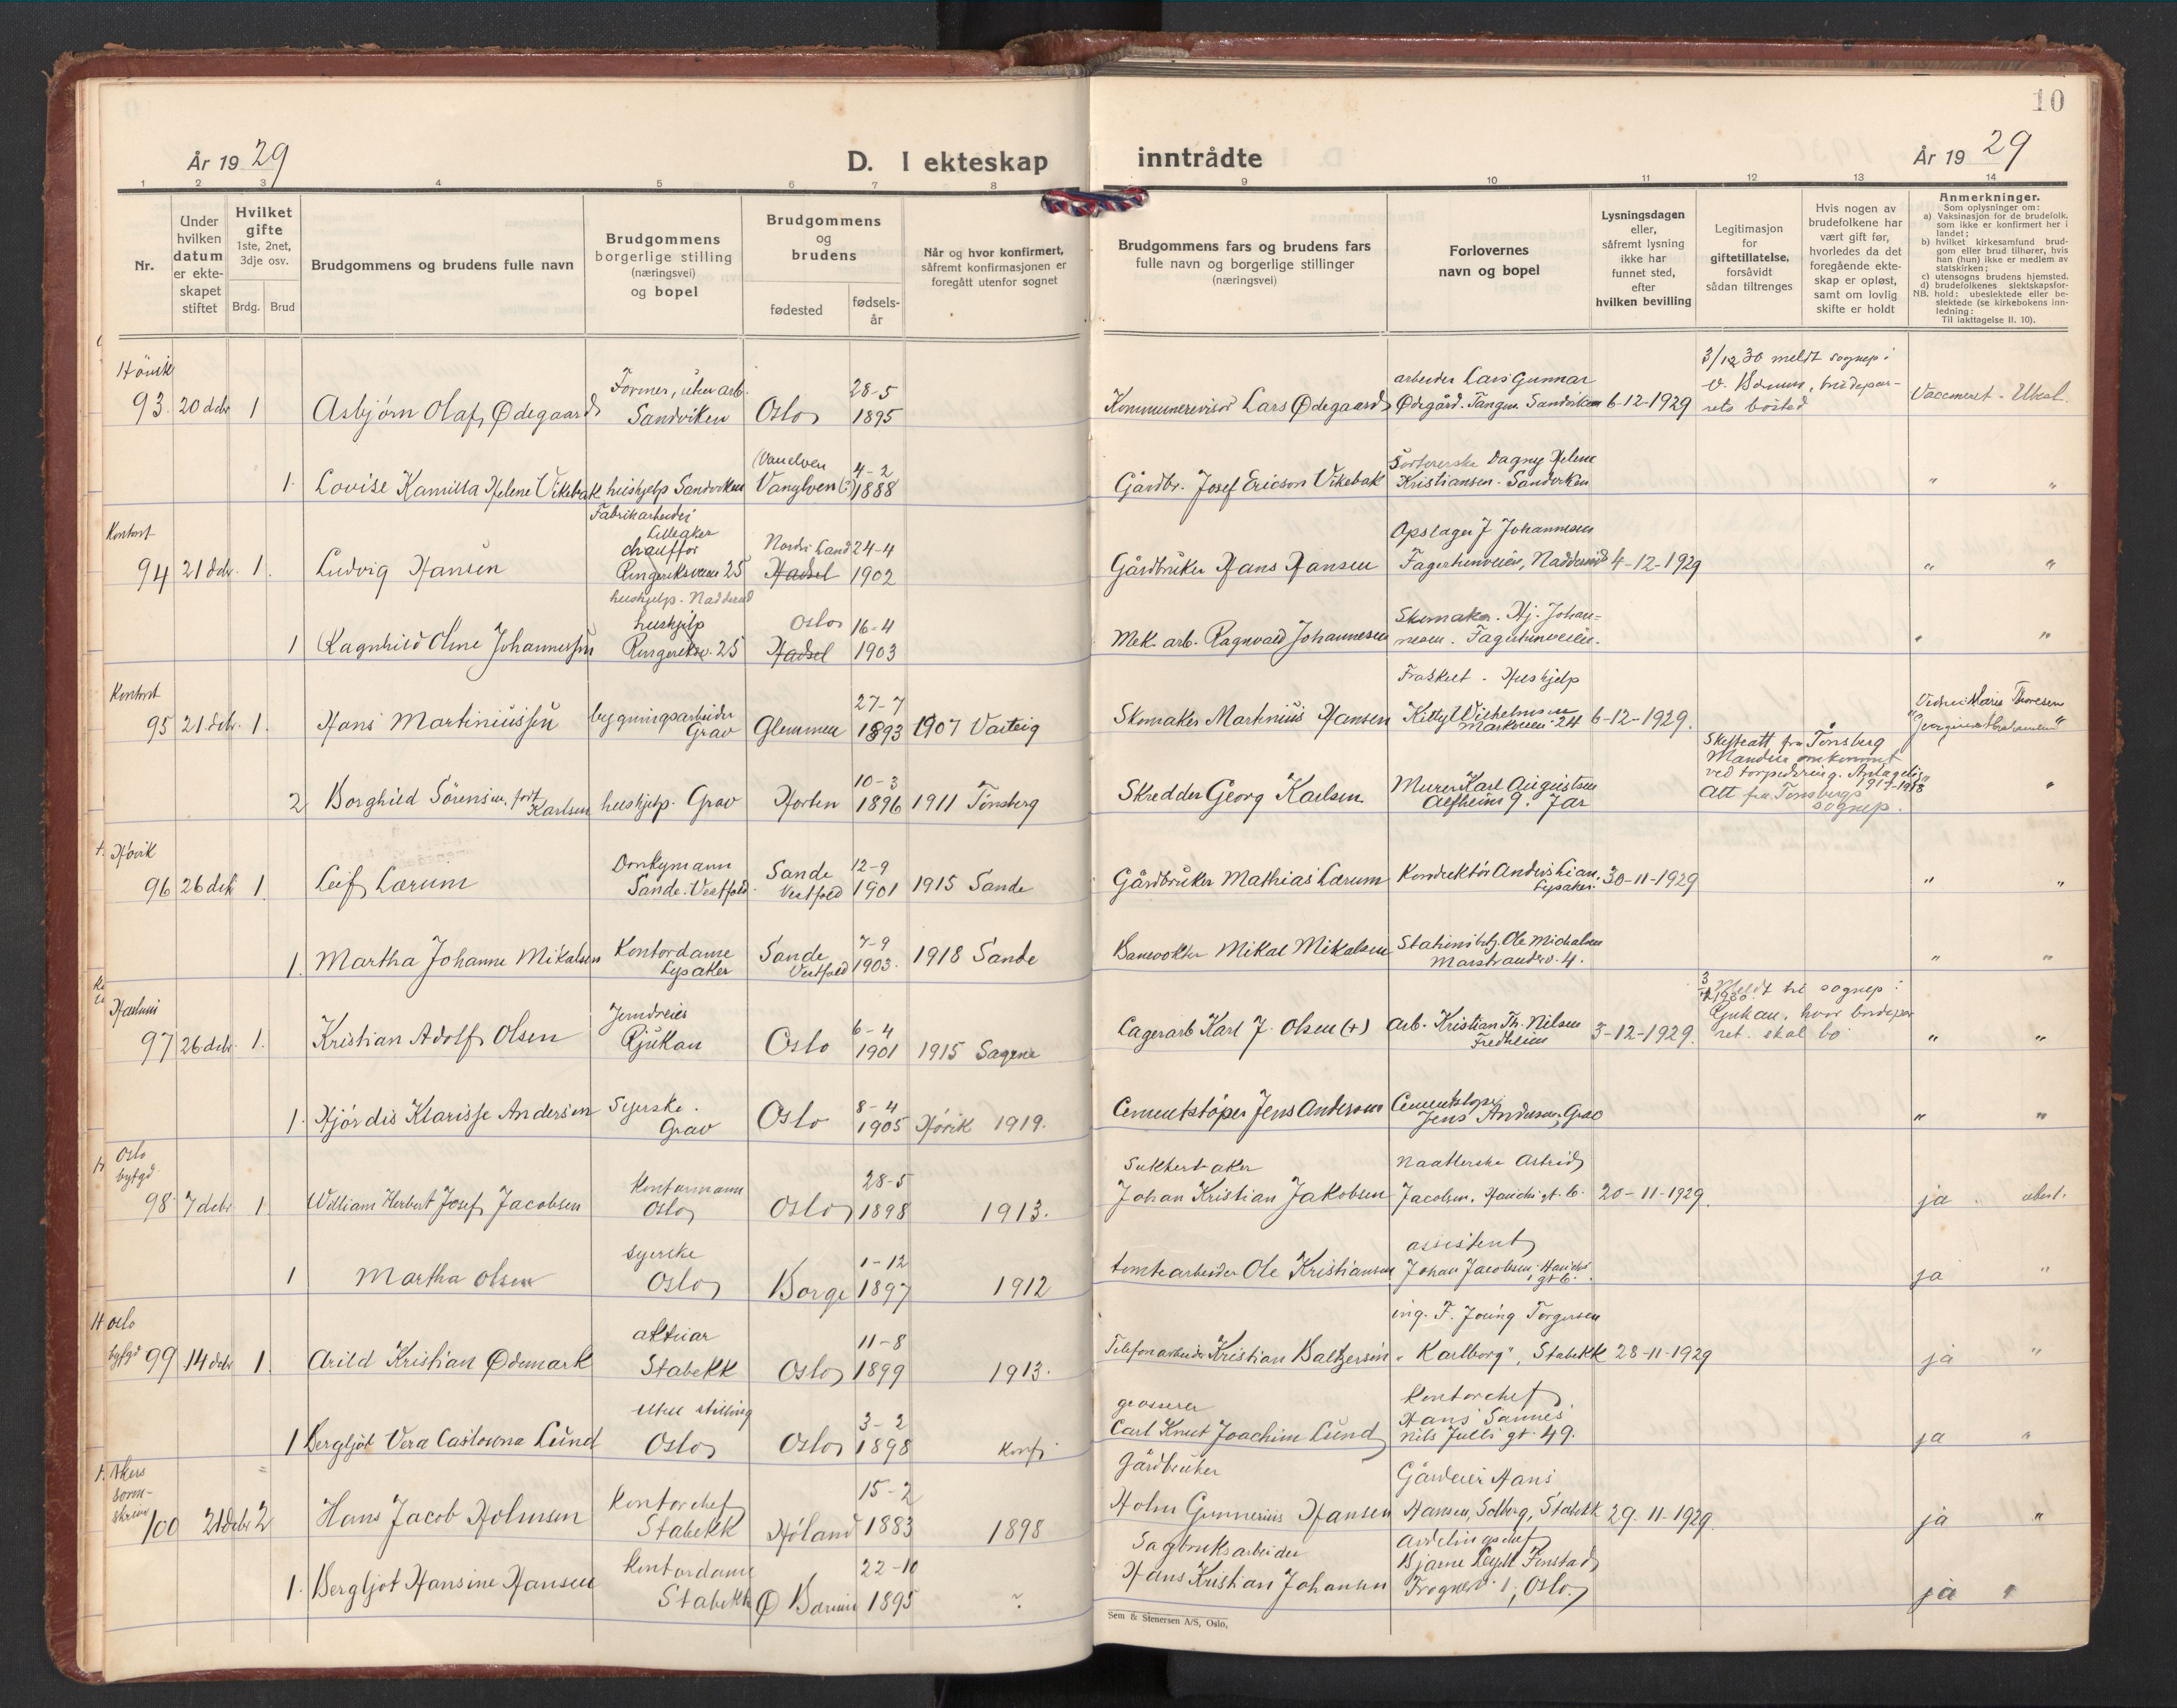 10
År 19 29
D. I ekteskap inntrådte
År 19 29
1 2 3 4 5 6 7 8 9 10 11 12 13 14
Nr.
Under hvilken datum er ekteskapet stiftet
Hvilket gifte
1ste, 2net, 3dje osv.
Brdg. Brud
Brudgommens og brudens fulle navn
Brudgommens borgerlige stilling (næringsvei) og bopel
Brudgommens og brudens
fødested
fødselsår
Når og hvor konfirmert, såfremt konfirmasjonen er foregått utenfor sognet
Brudgommens fars og brudens fars fulle navn og borgerlige stillinger (næringsvei)
Forlovernes navn og bopel
Lysningsdagen eller, såfremt lysning ikke har funnet sted, efter hvilken bevilling
Legitimasjon for giftetillatelse, forsåvidt sådan tiltrenges
Hvis nogen av brudefolkene har vært gift før, hvorledes da det foregående ekteskap er opløst, samt om lovlig skifte er holdt
Anmerkninger.
Som oplysninger om:
a) Vaksinasjon for de brudefolk, som ikke er konfirmert her i landet;
b) hvilket kirkesamfund brudgom eller brud tilhører, hvis han (hun) ikke er medlem av statskirken;
c) utensogns brudens hjemsted.
d) brudefolkenes slektskapsforhold: ubeslektede eller beslektede (se kirkebokens innledning:
NB. Til iakttagelse II. 10).
Høvik
93. 20 debr 1 Asbjørn Olaf Ødegaard Former, uten arb. Sandviken Oslo 28-5 1895 Kommunerevisor Lars Ødegaard arbeider Lars Gunnar Ødegård. Tangen Sandviken 6-12-1929 3/12 30 meldt sognep. i V. Bærum, brudeparrets bosted Vaccineret - Ubesl.
1. Lovise Kamilla Helene Vikebak hushjelp Sandviken Vanylven 4-2 1888 Gårdbr. Josef Ericson Vikebak Sortererske Dagny Helene Kristiansen - Sandviken " "
Kontort
94 21 debr. 1. Ludvig Hansen Fabrikarbeider Lilleaker chauffør Ringeriksveien 25 Nordre Land Hadsel 24-4 1902 Gårdbruker Hans Hansen Opslager J Johannesen Fagerhenveien, Nadderud 4-12-1929 " "
1 Ragnhild Oline Johannessen hushjelp - Nadderud hushjelp Ringeriksv. 25 Oslo Hadsel 16-4 1903 Mek. arb. Ragnvald Johannesen Skomaker. Hj. Johannesen. " "
Kontort
95 21 debr. 1. Hans Martiniussen bygningsarbeider Grav Glemmen 27-7 1893 1907 Varteig Skomaker Martinius Hansen Fraskilt - Hushjelp Kitty Wilhelmsen Markveien 24 6-12-1929.
2 Borghild Sørensen, født Karlsen hushjelp. Grav Horten 10-3 1896 1911 Tønsberg Skredder Georg Karlsen Murer Karl August Alfheim 9. Jar Skifteatt. fra Tønsberg Manden omkommet ved torpedering. Antagelig 1917-1918 Att fra Tønsbergs sognep. "
Høvik
96 26 debr 1 Leif Lærum Donkymann Sande. Vestfold. Sande Vestfold 12-9 1901 1915 Sande Gårdbruker Mathias Lærum Konduktør Anders Lian. Lysaker. 30-11-1929 " "
1. Martha Johanne Mikalsen Kontordame Lysaker Sande Vestfold 7-9 1903. 1918 Sande Banevokter Mikal Mikalsen Stasjonsbetj. Ole Michalsen Marstrandv. 4. " "
Haslum
97 26 debr. 1. Kristian Adolf Olsen Jerndreier Rjukan Oslo 6-4 1901 1915 Sagene Lagerarb Karl J. Olsen (+) Arb. Kristian Th. Nilsen Fredheim 3-12-1929. Meldt til sognep. i Rjukan, hvor brudeparret skal bo " "
1. Hjørdis Klarisse Andersen Syerske. Grav Oslo 8-4 1905 Høvik 1919. Cementstøper Jens Andersen Cementstøper Jens Andersen, Grav " "
Oslo byfgd
98 7 debr 1 William Herbert Josef Jacobsen Kontormann Oslo Oslo 28-5 1898 1913. Sukkerbaker Johan Kristian Jakobsen Naatlerske Astrid Jacobsen, 20-11-1929. ja ubesl.
1 Martha Olsen Syerske Oslo Borge 1-12 1897 1912 tomtearbeider Ole Kristiansen assistent Johan Jacobsen ja "
Oslo byfgd
99 14 debr 1. Arild Kristian Ødemark aktuar Stabekk Oslo 11-8 1899 1913. Telefonarbeider Kristian Baltzersen ing. F. Joung Torgersen "Karlborg", Stabekk 28-11-1929 ja "
1 Bergljot Vera Casloona Lund uten stilling Oslo Oslo 3-2 1898 konf. grosserer Carl Knut Joachim Lund Kontorchef Hans Sannes Nils Juels gt. 49. ja "
Akers sorenskriver
100 21 debr 2 Hans Jacob Holmsen Kontorchef Stabekk Høland 15-2 1883 1898 Gårdbruker Holm Gunnerius Hansen Gårdeier Hans Hansen, Solberg, Stabekk 29-11-1929. ja "
1. Bergljot Hansine Hansen Kontordame Stabekk Ø Bærum 22-10 1895 ? Sagbruksarbeider Hans Kristian Johansen avdelingschef Bjarne Finstad Frognerv. 1, Oslo ja "
Sem & Stenersen A/S, Oslo.